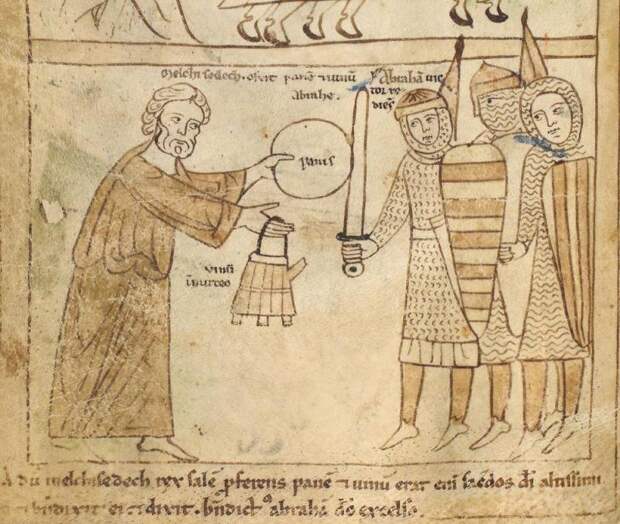 Melchisedech. obtt panē ⁊ uinū
Abrahe.
Abrahā uic
tor re
diēs
panis
uinū
ī urceo
At ū melchisedech rex salē ꝓferens panē ⁊ uinū erat eni sac̄dos dī altissimi
⁊ bn̄dixit ei ⁊ dixit. bn̄dict᷒ abrahā dō excelso.